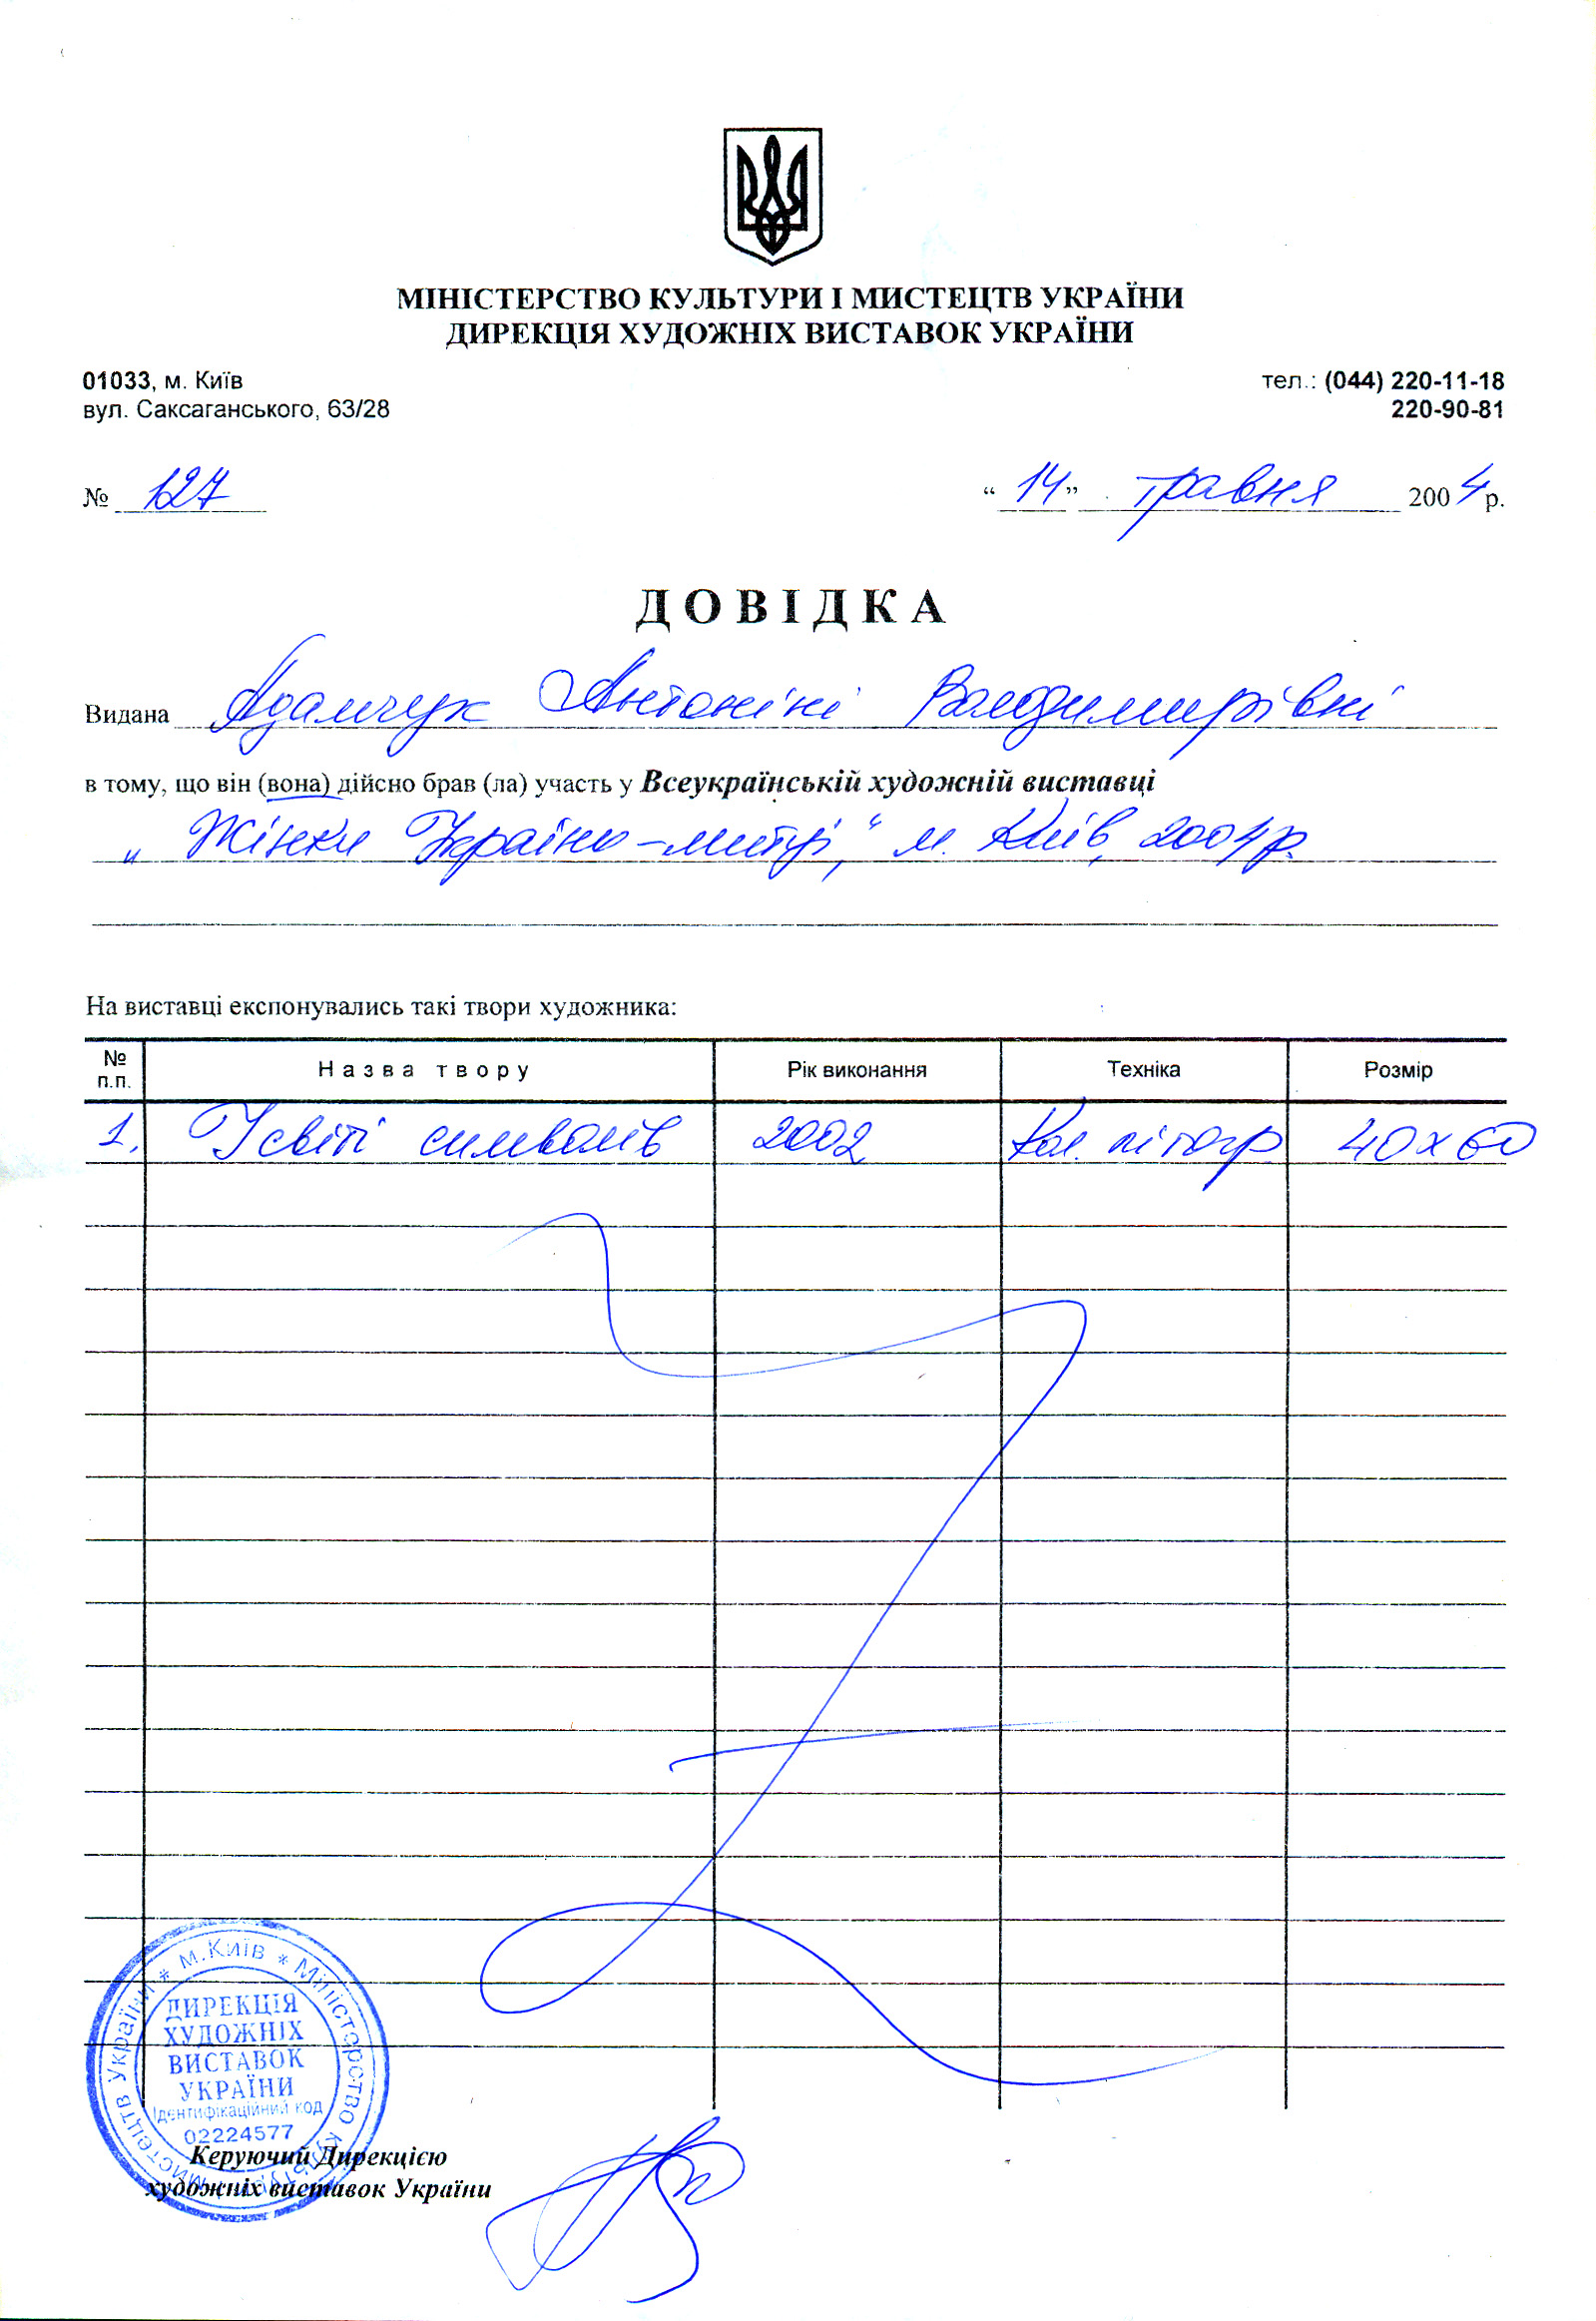 МІНІСТЕРСТВО КУЛЬТУРИ І МИСТЕЦТВ УКРАЇНИ
ДИРЕКЦІЯ ХУДОЖНІХ ВИСТАВОК УКРАЇНИ
01033, м. Київ тел.: (044) 220-11-18
вул. Саксаганського, 63/28 220-90-81
№ 127 “14” травня 2004 р.
ДОВІДКА
Видана Адамчук Антоніні Володимирівні
в тому, що він (вона) дійсно брав (ла) участь у Всеукраїнській художній виставці
„Жінки України – митці,“ м. Київ, 2004 р.
На виставці експонувались такі твори художника:
№ п.п. Назва твору Рік виконання Техніка Розмір
1. У світі символів 2002 Кол. літогр 40 х 60
м.Київ * Міністерство культури і мистецтв України *
ДИРЕКЦІЯ
ХУДОЖНІХ
ВИСТАВОК
УКРАЇНИ
Ідентифікаційний код
02224577
Керуючий Дирекцією
художніх виставок України